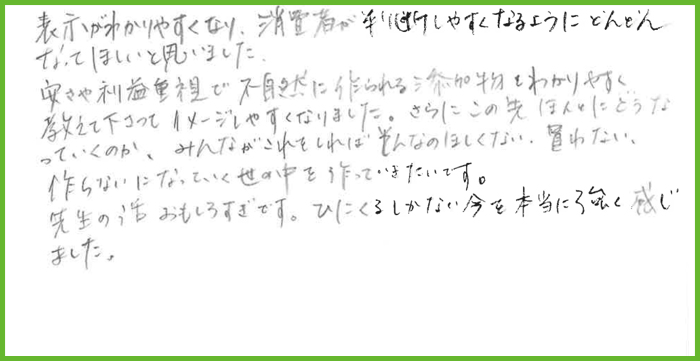 表示がわかりやすくなり、消費者が判断しやすくなるようにどんどん
なってほしいと思いました。
安さや利益重視で不自然に作られる添加物をわかりやすく
教えて下さってイメージしやすくなりました。さらにこの先ほんとにどうな
っていくのか、みんながこれをしればそんなのほしくない、買わない、
作らないになっていく世の中を作っていきたいです。
先生の話おもしろすぎです。ひにくるしかない今を本当に強く感じ
ました。